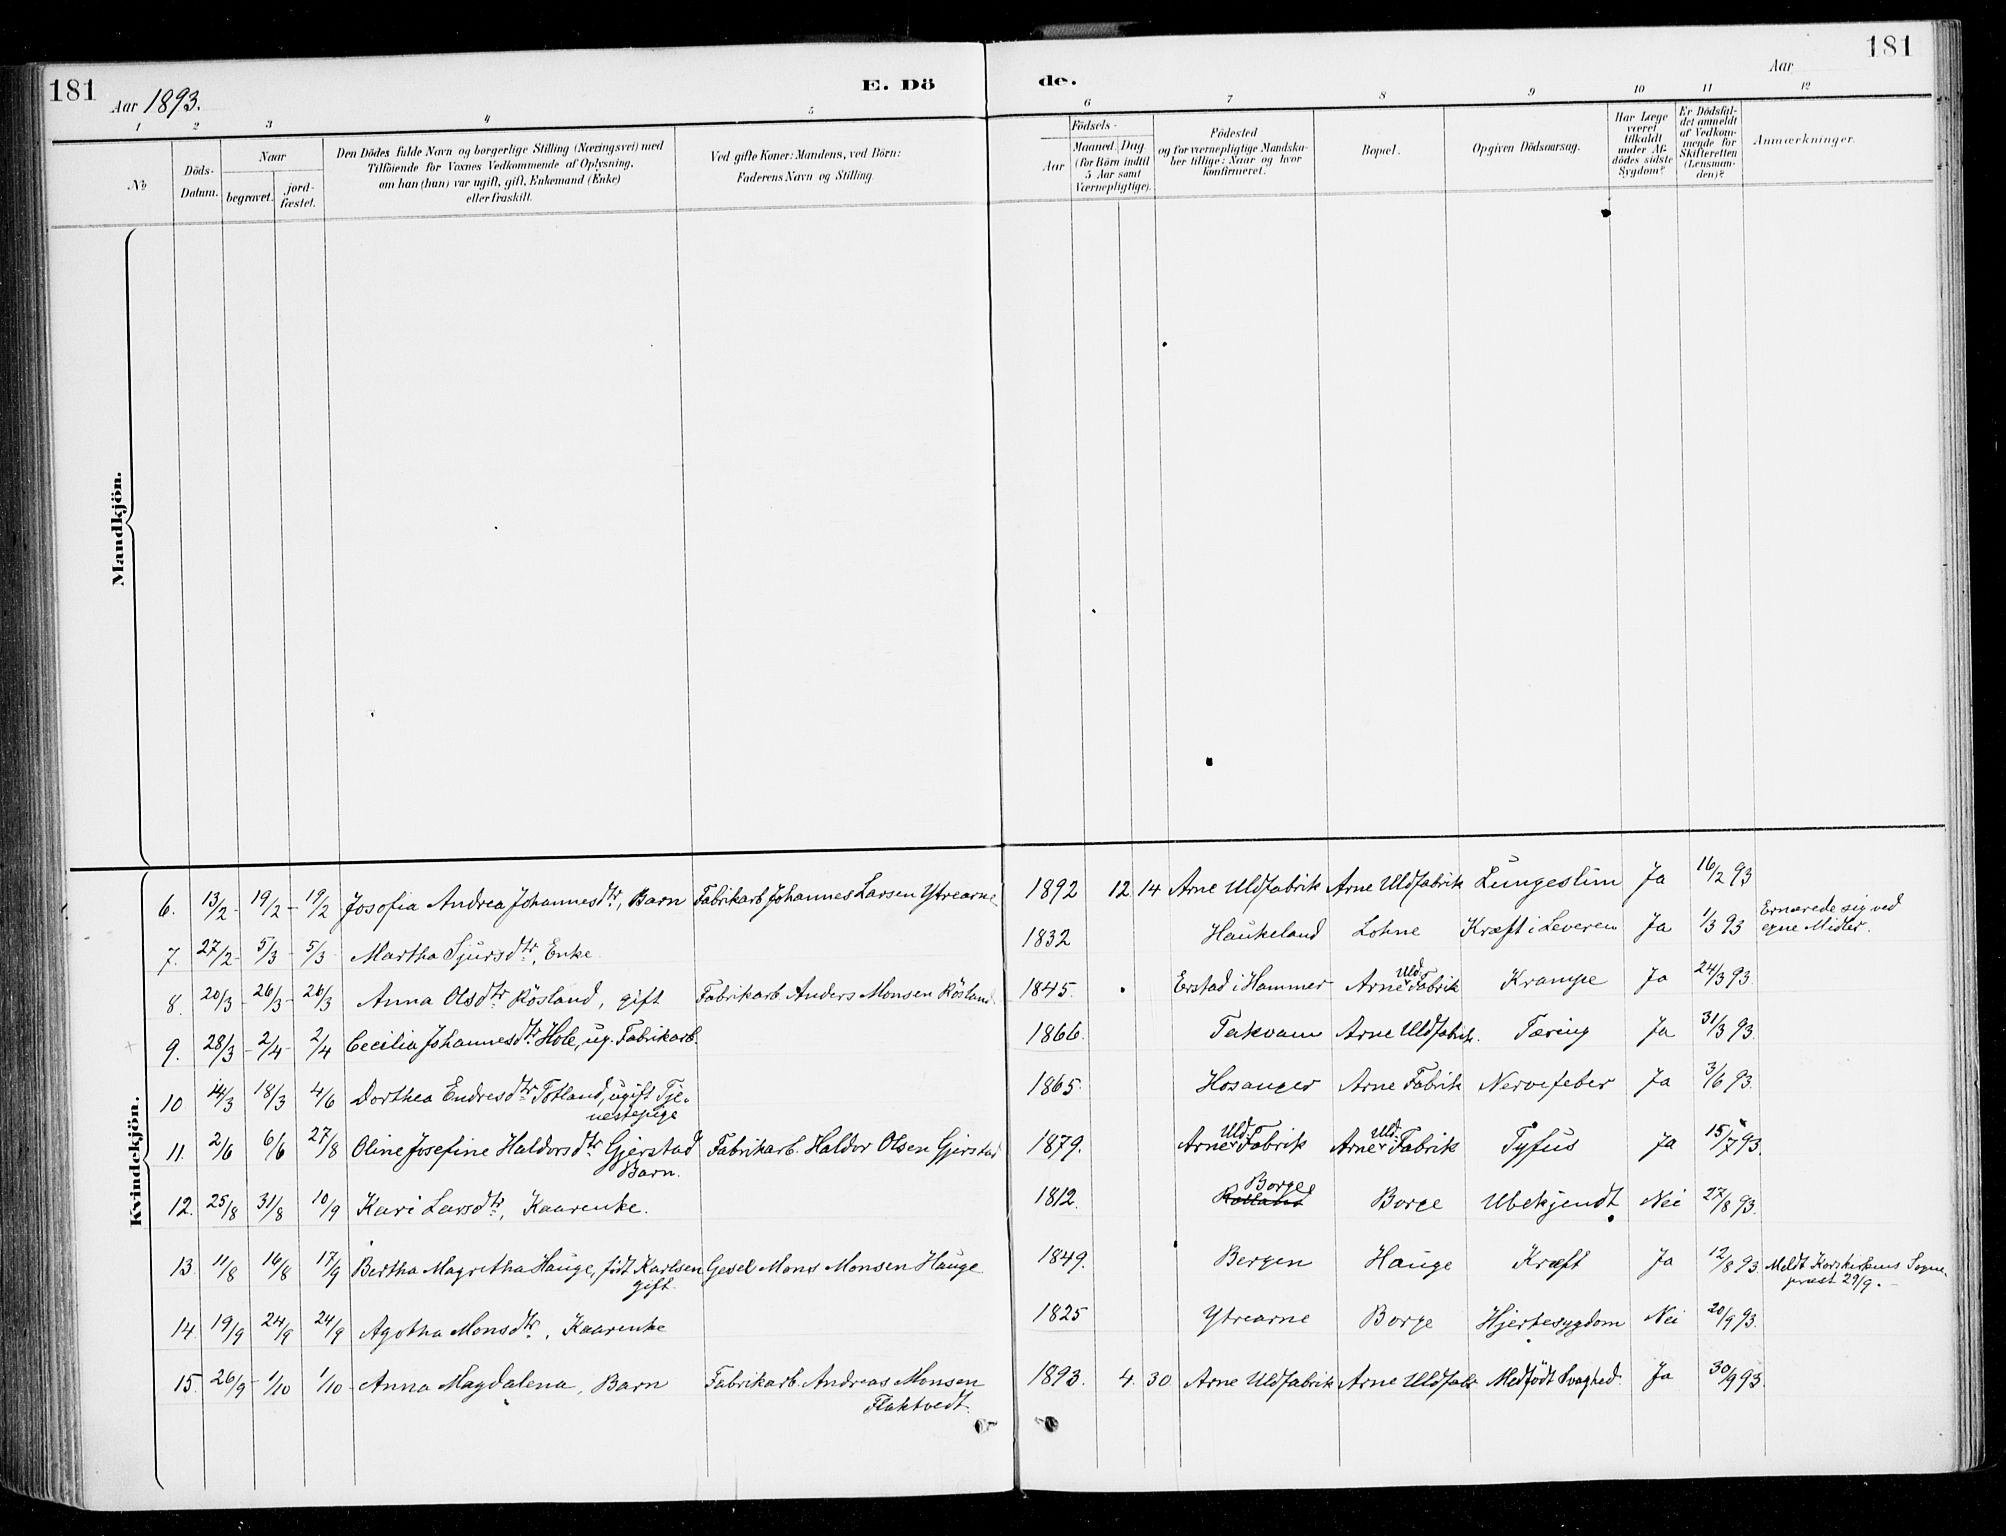 181
181
Aar 1893.
E. Dö
de.
Aar
1 2 3 4 5 6 7 8 9 10 11 12
No
Döds-Datum.
Naar
begravet.
jord-fæstet.
Den Dödes fulde Navn og borgerlige Stilling (Næringsvei) med
Tilföiende for Voxnes Vedkommende af Oplysning,
om han (hun) var ugift, gift, Enkemand (Enke)
eller fraskilt.
Ved gifte Koner: Mandens, ved Börn:
Faderens Navn og Stilling.
Födsels-
Aar
Maaned. Dag.
(for Börn indtil
5 Aar samt
Værnepligtige).
Födested
og for værnepligtige Mandska-
ber tillige: Naar og hvor
konfirmeret.
Bopæl.
Opgiven Dödsaarsag.
Har Læge
været
tilkaldt
under Af-
dödes sidste
Sygdom?
Er Dödsfal-
det anmeldt
af Vedkom-
mende for
Skifteretten
(Lensman-
den)?
Anmærkninger.
Mandkjön.
Kvindekjön.
6. 13/2 - 19/2 - 19/2 Josefia Andrea Johannesdtr, Barn Fabrikarb. Johannes Larsen Ytrearne 1892 12 14 Arne Uldfabrik Arne Uldfabrik Lungeslim Ja 16/2 93
7. 27/2 - 5/3 - 5/3 Martha Sjursdtr, Enke. 1832 Haukeland Lohne Kræft i Leveren Ja 1/3 93 Ernærede sig ved
egne Midler.
8. 20/3 - 26/3 - 26/3 Anna Olsdtr Rösland, gift Fabrikarb. Anders Monsen Rösland. 1845. Erstad i Hammer Arne Uld-Fabrik Krampe Ja 24/3 93.
9. 28/3 - 2/4 - 2/4 Cecilia Johannesdtr Hole, ug. Fabrikarb. 1866. Takvam Arne Uldfabrik. Tæring Ja 31/3 93.
10 14/3 18/3 4/6 Dorthea Endresdtr Totland, ugift Tje-
nestepige 1865. Hosanger Arne Fabrik Nervefeber Ja 3/6 93.
11. 2/6 6/6 27/8 Oline Josefine Haldorsdtr Gjerstad
Barn. Fabrikarb. Haldor Olsen Gjerstad 1879. Arne Uld-Fabrik Arne Uld-Fabrik Tyfus Ja 15/7 93.
12. 25/8 31/8 10/9 Kari Larsdtr, Kaarenke. 1812. Borge Borge Ubekjendt Nei 27/8 93.
13 11/8 16/8 17/9 Bertha Magretha Hauge, født Karlsen
gift. Gesel Mons Monsen Hauge 1849. Bergen Hauge Kræft Ja 12/8 93. Meldt Korskirkens Sogne-
præst 29/9. -
14. 19/9 24/9 24/9 Agotha Monsdtr, Kaarenke 1825 Ytrearne Borge Hjertesygdom Nei 20/9 93.
15. 26/9 - 1/10 1/10 Anna Magdalena, Barn Fabrikarb. Andreas Monsen
Flaktvedt. 1893. 4. 30 Arne Uldfabrik Arne Uldfabr Medfödt Svaghed. Ja 30/9 93.